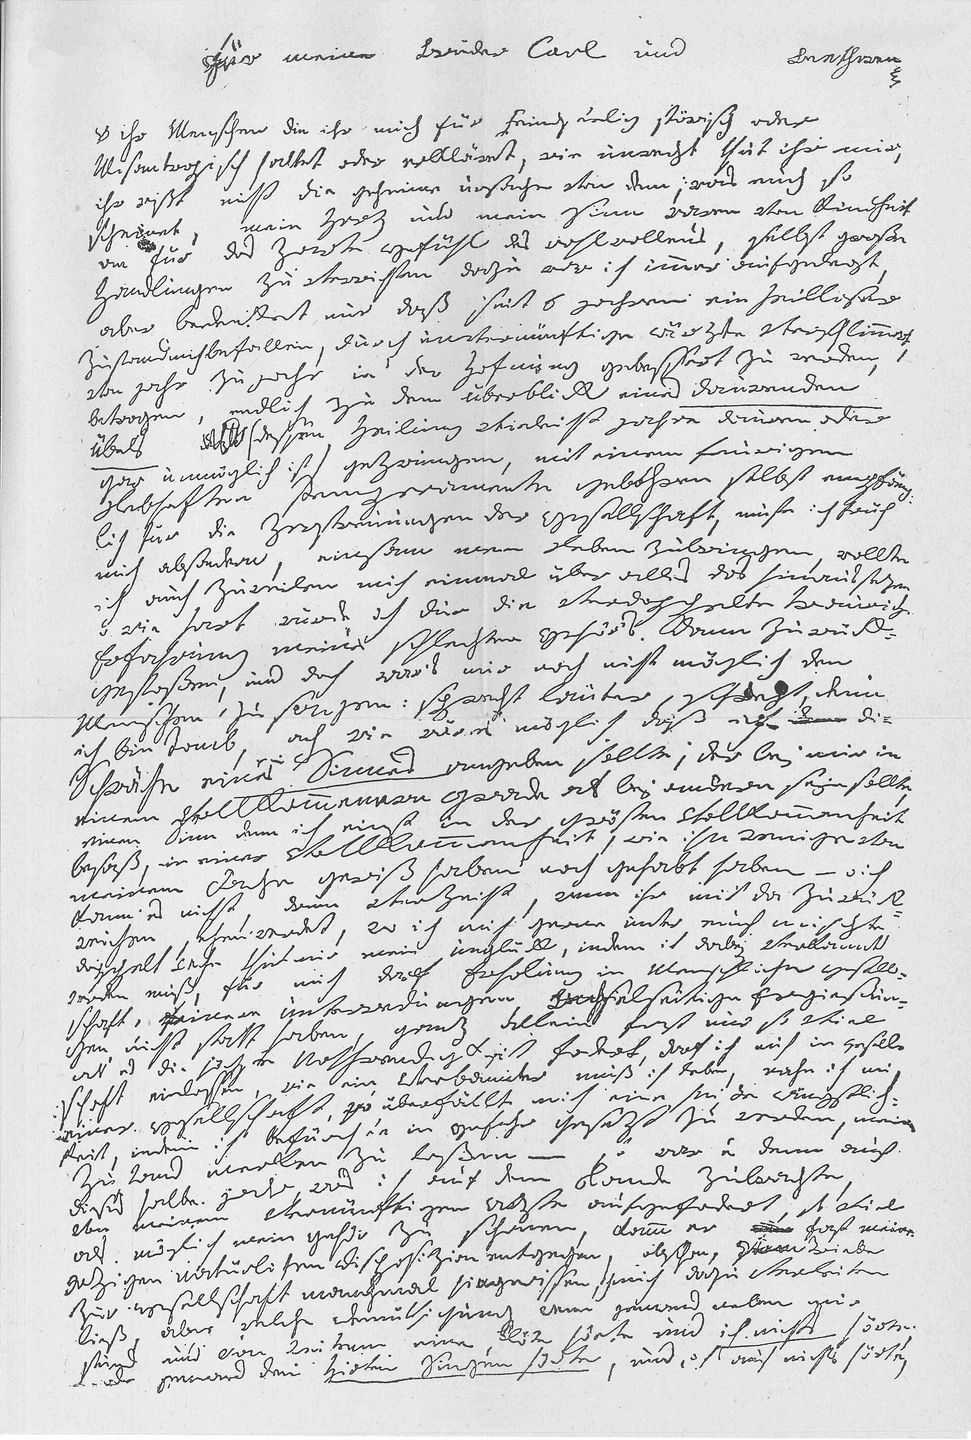 für meine Brüder Carl und Beethowen
O ihr Menschen die ihr mich für Feindseelig störisch oder
Misantropisch haltet oder erkläret, wie unrecht thut ihr mir,
ihr wißt nicht die geheime ursache von dem; was euch so
scheinet, mein Herz und mein Sinn waren von Kindheit
an für das Zarte gefühl des wohlwollens, selbst große
Handlungen zu verrichten dazu war ich immer aufgelegt,
aber bedenket nur daß seit 6 jahren ein heilloser
Zustand mich befallen, durch unvernünftige ärzte verschlimmert,
von jahr zu jahr in der Hofnung gebessert zu werden,
betrogen, endlich zu dem überblick eines daurenden
übels (dessen Heilung vieleicht jahre dauren oder
gar unmöglich ist) gezwungen, mit einem feurigen
Lebhaften Temperamente gebohren selbst empfäng-
lich für die Zerstreuungen der Gesellschaft, muste ich früh
mich absondern, einsam mein Leben zubringen, wollte
ich auch zuweilen mich einmal über alles das hinaussezen
o wie hart wurde ich dur die verdoppelte traurige
Erfahrung meines schlechten Gehör's dann zurück-
gestoßen, und doch war's mir noch nicht möglich den
Menschen zu sagen: sprecht lauter, schrejt, denn
ich bin taub, ach wie wär es möglich daß ich die
Schwäche eines Sinnes angeben sollte; der bej mir in
einem Vollkommenern Grade als bej andern sejn sollte,
einen Sinn denn ich einst in der grösten Vollkommenheit
besaß, in einer Vollkommenheit, wie ihn wenige von
meinem Fache gewiß haben noch gehabt haben — o ich
kann es nicht, drum verzeiht, wenn ihr mich da zurück-
weichen sehen werdet, wo ich mich gerne unter euch mischte
doppelt Wehe thut mir mein unglück, indem ich dabej verkannt
werden muß, für mich darf Erholung in Menschlicher Gesell-
schaft, feinere unterredungen, Wechselseitige Ergießun-
gen nicht statt haben, ganz allein fast nur so viel
als es die höchste Nothwendigkeit fodert, darf ich mich in gesell-
schaft einlassen, wie ein Verbannter muß ich leben, nahe ich mich
einer Gesellschaft, so überfällt mich eine heiße ängstlich-
keit, indem ich befürchte in Gefahr gesezt zu werden, meinen
Zustand merken zu laßen — so war es denn auch
dieses halbe jahr, was ich auf dem Lande zubrachte,
von meinem vernünftigen Arzte aufgefodert, so viel
als möglich mein Gehör zu schonen, kamm er fast meiner
jezigen natürlichen Disposizion entgegen, obschon, vom Triebe
zur Gesellschaft manchmal hingerissen, ich mich dazu verleiten
ließ, aber welche Demüthigung wenn jemand neben mir
stund und von weitem eine Flöte hörte und ich nichts hörte;
oder jemand den Hirten Singen hörte, und ich auch nichts hörte,